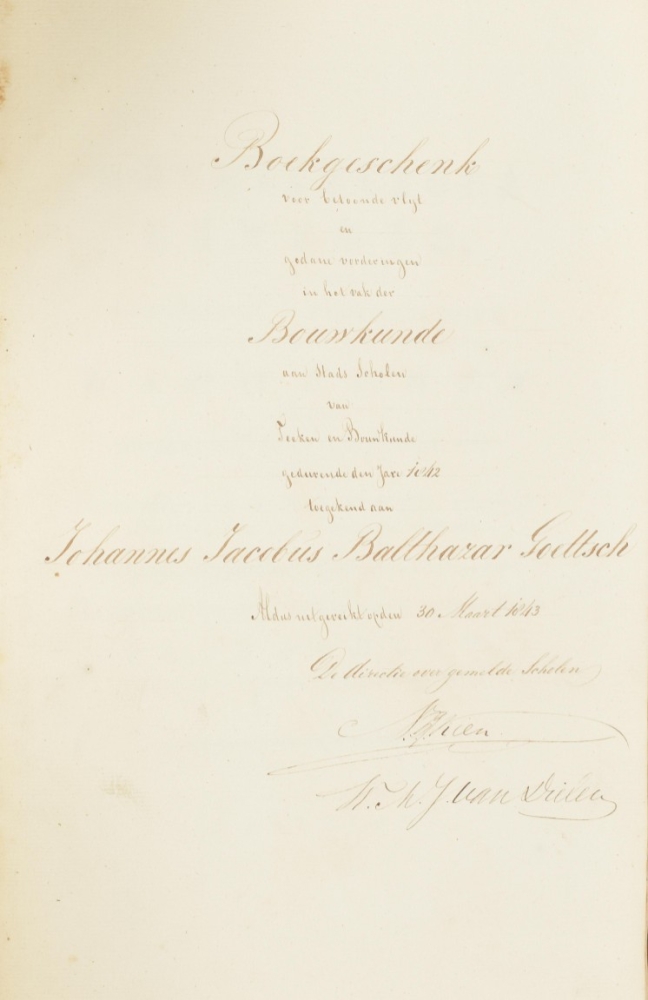 Boekgeschenk
voor betoonde vlyt
en
gedane vorderingen
in het vak der
Bouwkunde
aan Stads Scholen
van
Teeken en Bouwkunde
gedurende den Jare 1842
toegekend aan
Johannes Jacobus Balthazar Goettsch
Aldus uitgereikt op den 30 Maart 1843
De directie over gemelde Scholen
W. Th. J. van Dielen